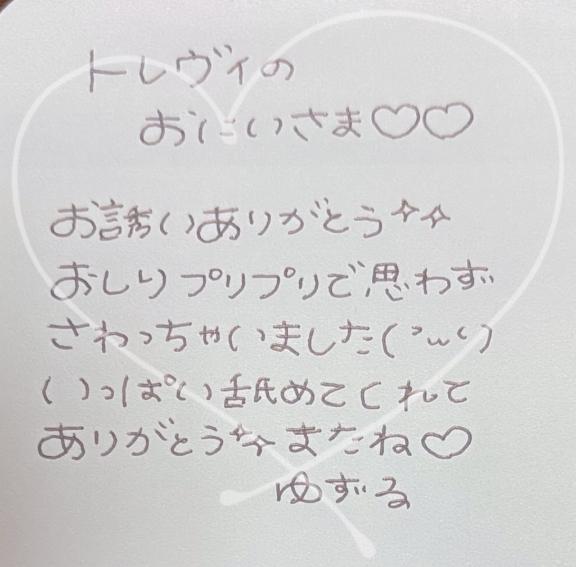 トレヴィの
おにいさま♡♡
お誘いありがとう✧✧
おしりプリプリで思わず
さわっちゃいました(˃ω˂)
いっぱい舐めてくれて
ありがとう✧✧またね♡
ゆずる